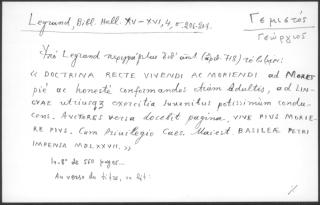 Legrand, Bibl. Hell. XV-XVI, 4, σ. 206-207.
Γεμιστός
Γεώργιος
Ὑπὸ Legrand περιγράφεται (ἀριθ. 718) τὸ
« DOCTRINA RECTE VIVENDI AC MORIENDI ad MORES
piè ac honestè conformandos etiam adultis, ad LIN-
GVAE utriusq3 exercitia Iuuentuti potissimum condu-
cens. AVCTORES versa docebit pagina. VIVE PIVS MORIE-
RE PIVS. Cum Priuilegio Caes. Maiest. BASILEAE PETRI
IMPENSA MDLXXVII. »
In-8° de 560 pages...
Au verso du titre, on lit: